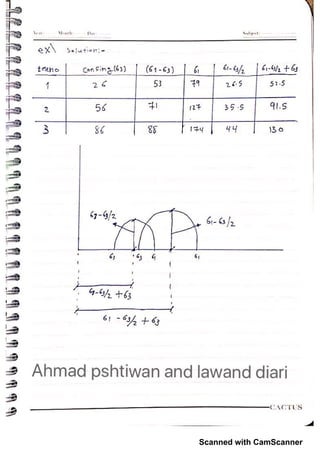 Year: Month: Day: Subject:
ex\ Solution:-
test no | Confining (б3) | (б1-б3) | б1 | б1-б3/2 | б1-б3/2 +б3
1 26 53 79 26.5 52.5
2 56 71 127 35.5 91.5
3 86 88 174 44 130
б1-б3/2
б1-б3/2
б3 б3 б1 б1
б1-б3/2 +б3
б1 - б3/2 + б3
Ahmad pshtiwan and lawand diari
CACTUS
Scanned with CamScanner